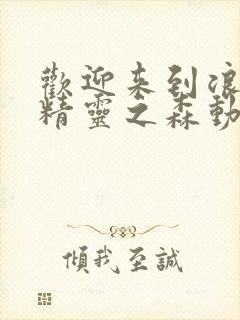 歡迎来到浪
精靈之森動
傾我至誠